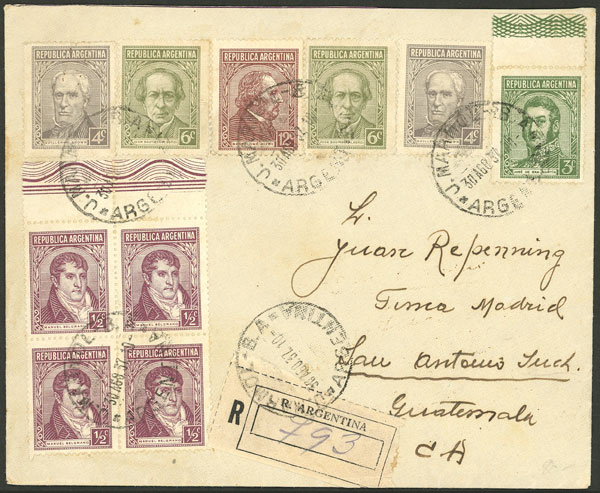 REPUBLICA ARGENTINA
4c
REPUBLICA ARGENTINA
6c
REPUBLICA ARGENTINA
12c
REPUBLICA ARGENTINA
6c
REPUBLICA ARGENTINA
4c
REPUBLICA ARGENTINA
3c
JOSÉ DE SAN MARTIN
ARGEN
ARGEN
ARGEN
REPUBLICA ARGENTINA
1/2c
MANUEL BELGRANO
REPUBLICA ARGENTINA
1/2c
MANUEL BELGRANO
REPUBLICA ARGENTINA
1/2c
MANUEL BELGRANO
REPUBLICA ARGENTINA
1/2c
MANUEL BELGRANO
Juan Repenning
Finca Madrid
San Antonio Such.
Guatemala
CA
ARGENTINA
R
R. ARGENTINA
793